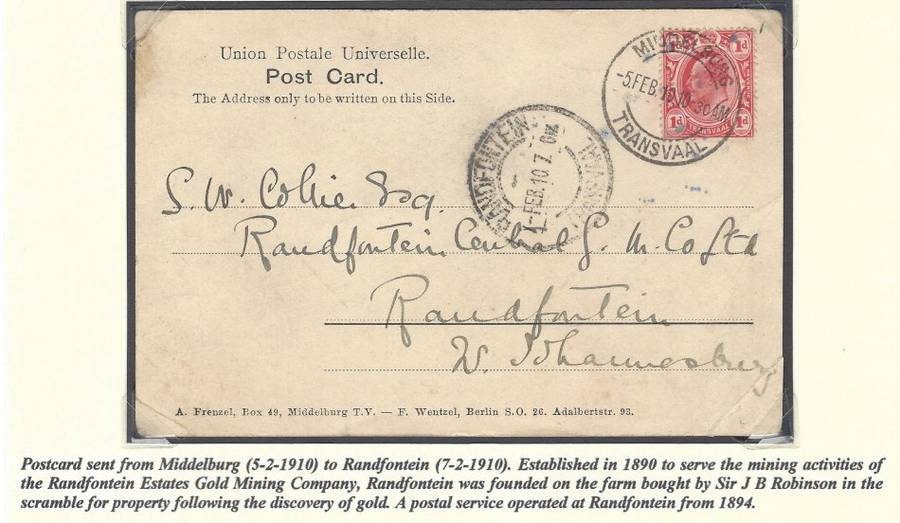 Union Postale Universelle.
Post Card.
The Address only to be written on this Side.
1d 1d
1d 1d
TRANSVAAL
MIDDELBURG
-5 FEB 10 10-30AM
TRANSVAAL
RANDFONTEIN
7-FEB. 10 7
S. W. Collie Esq.
Randfontein Central G. M. Co Ltd
Randfontein
W. Johannesburg
A. Frenzel, Box 49, Middelburg T.V. — F. Wentzel, Berlin S.O. 26. Adalbertstr. 93.
Postcard sent from Middelburg (5-2-1910) to Randfontein (7-2-1910). Established in 1890 to serve the mining activities of
the Randfontein Estates Gold Mining Company, Randfontein was founded on the farm bought by Sir J B Robinson in the
scramble for property following the discovery of gold. A postal service operated at Randfontein from 1894.